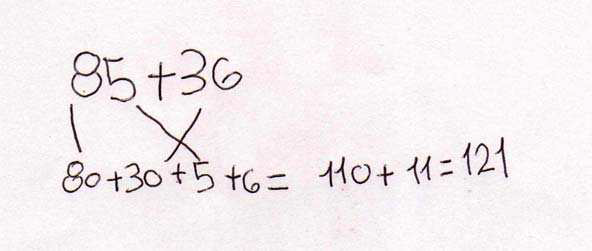 85+36
80+30+5+6= 110+11=121